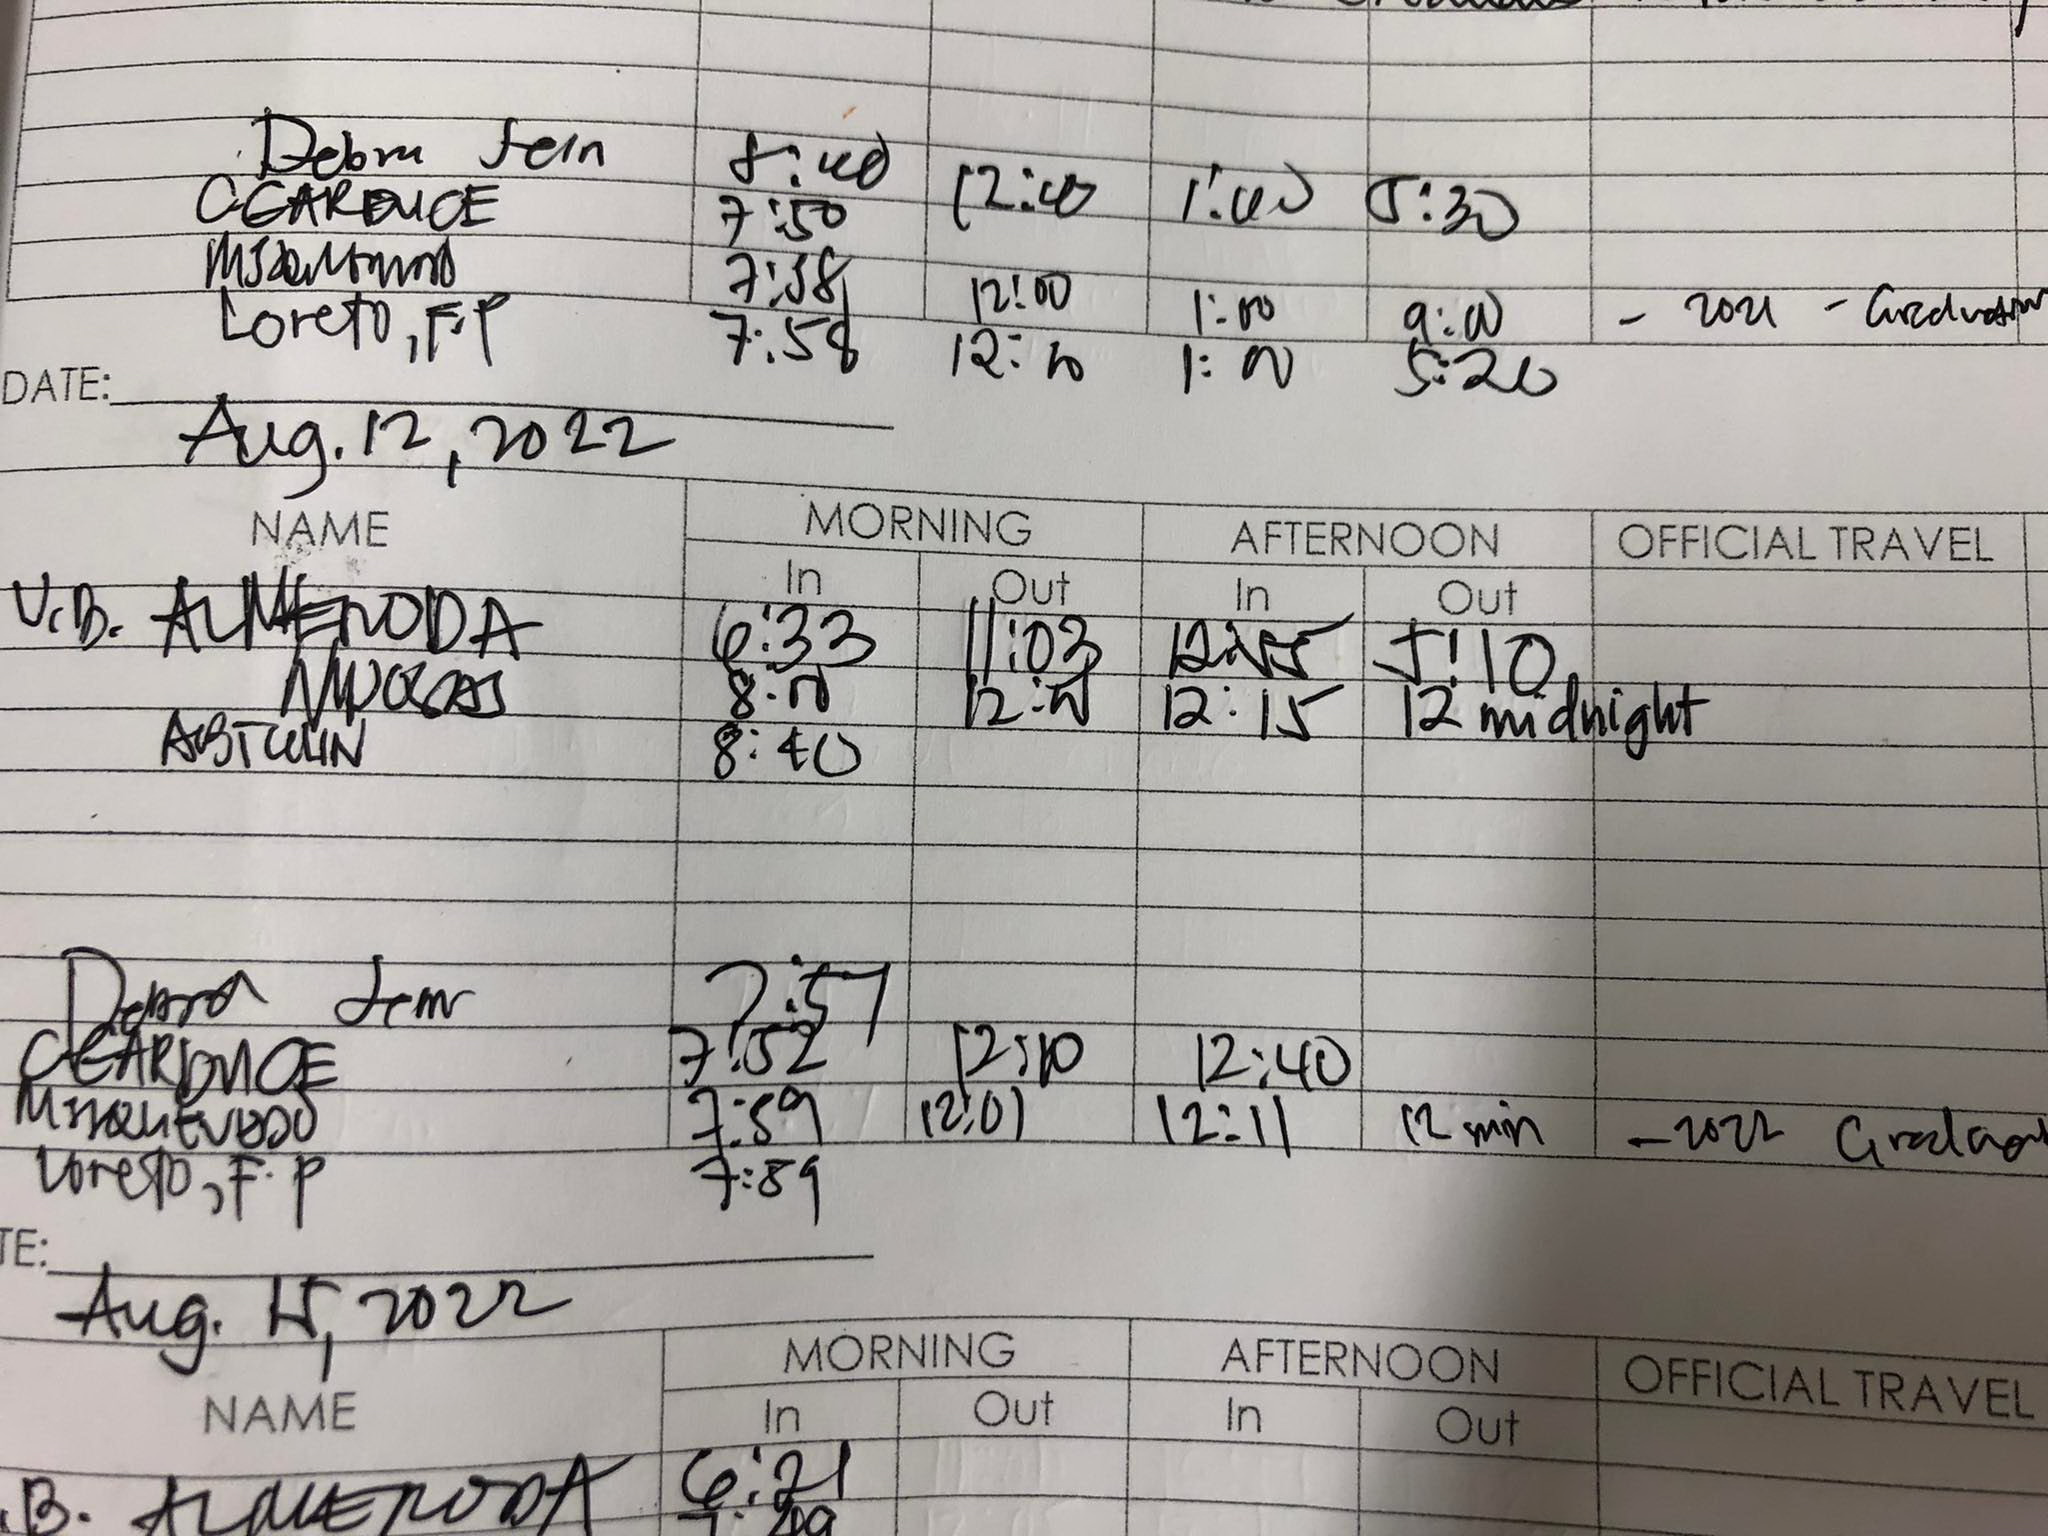 Debra Fein 8:40 12:40 1:40 5:30
CGARDUCE 7:50
7:58 12:00 1:00 9:00 - 2021 - Graduation
Loreto, F.P 7:58 12:10 1:00 5:20
DATE:
Aug. 12, 2022
NAME MORNING AFTERNOON OFFICIAL TRAVEL
In Out In Out
V.B. ALMERODA 6:33 11:03 12:55 5:10
8:00 12:00 12:15 12 midnight
8:40
Debra 7:57
CGARDUCE 7:52 12:10 12:40
7:59 12:01 12:11 12 min -2022
Loreto, F.P 7:59
TE:
Aug. 15, 2022
NAME MORNING AFTERNOON OFFICIAL TRAVEL
In Out In Out
.B. ALMERODA 6:21